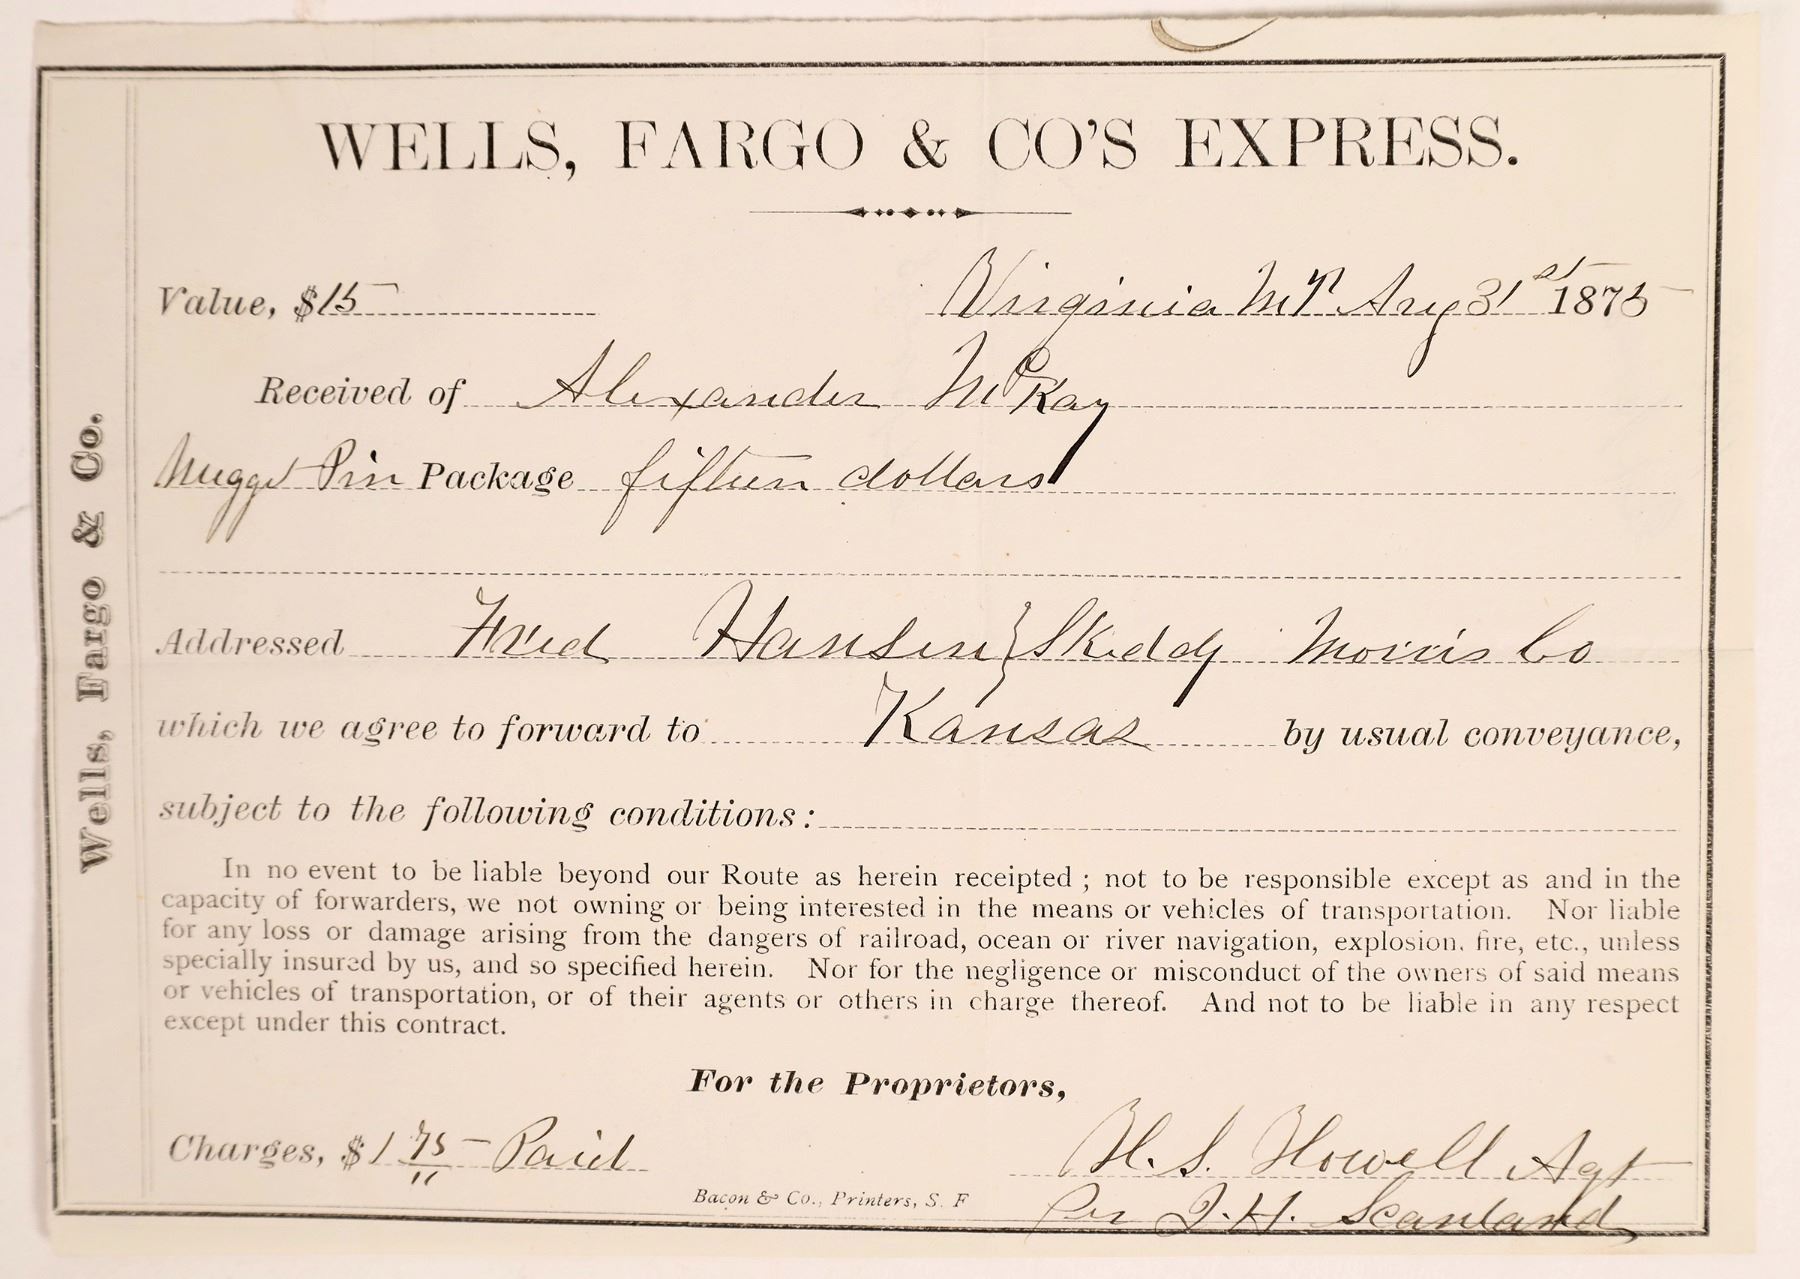 WELLS, FARGO & CO'S EXPRESS.
Wells, Fargo & Co.
Value, $15 Virginia MT Aug 31st 1875
Received of Alexander McKay
Nugget Pin Package fifteen dollars
Addressed Fred Hansen } Skiddy Morris Co
which we agree to forward to Kansas by usual conveyance,
subject to the following conditions:
In no event to be liable beyond our Route as herein receipted ; not to be responsible except as and in the
capacity of forwarders, we not owning or being interested in the means or vehicles of transportation. Nor liable
for any loss or damage arising from the dangers of railroad, ocean or river navigation, explosion, fire, etc., unless
specially insured by us, and so specified herein. Nor for the negligence or misconduct of the owners of said means
or vehicles of transportation, or of their agents or others in charge thereof. And not to be liable in any respect
except under this contract.
For the Proprietors,
Charges, $1 75 Paid H. S. Howell Agt
Per J. H. Scanland
Bacon & Co., Printers, S. F